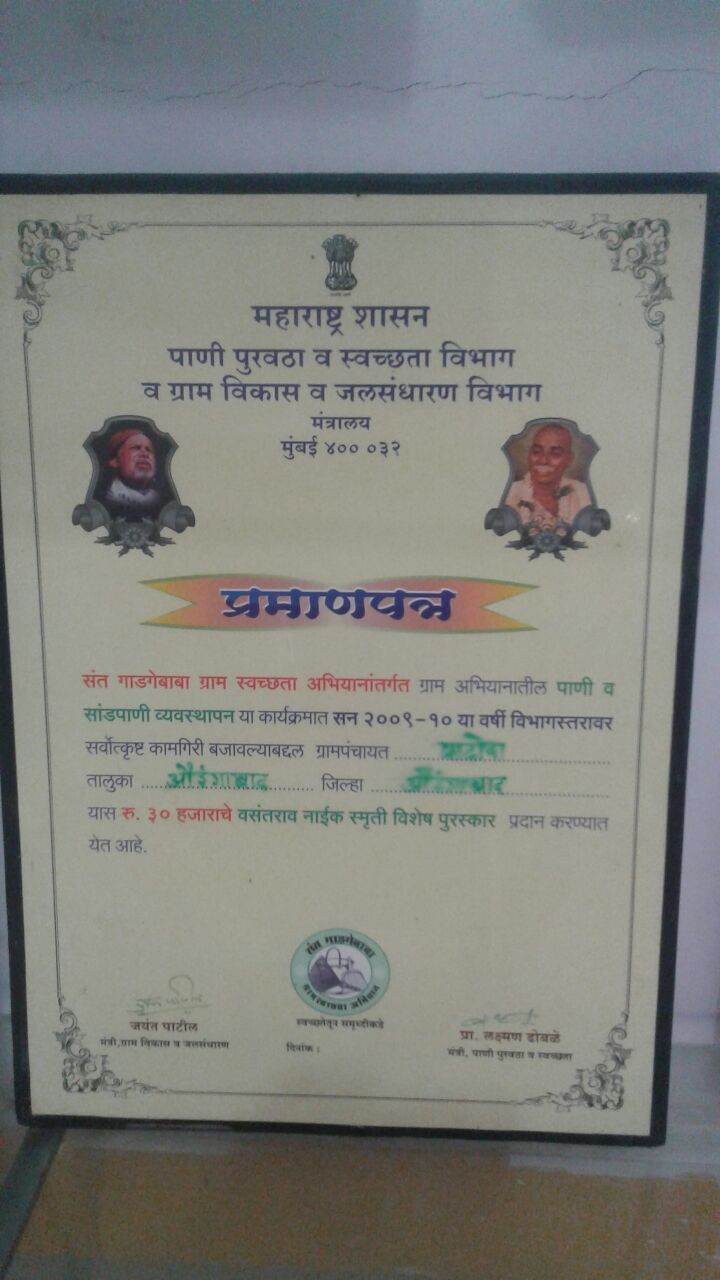 महाराष्ट्र शासन
पाणी पुरवठा व स्वच्छता विभाग
व ग्राम विकास व जलसंधारण विभाग
मंत्रालय
मुंबई ४०० ०३२
प्रमाणपत्र
संत गाडगेबाबा ग्राम स्वच्छता अभियानांतर्गत ग्राम अभियानातील पाणी व
सांडपाणी व्यवस्थापन या कार्यक्रमात सन २००९-१० या वर्षी विभागस्तरावर
सर्वोत्कृष्ट कामगिरी बजावल्याबद्दल ग्रामपंचायत पाटोदा
तालुका औरंगाबाद जिल्हा औरंगाबाद
यास रु. ३० हजाराचे वसंतराव नाईक स्मृती विशेष पुरस्कार प्रदान करण्यात
येत आहे.
संत गाडगेबाबा
ग्रामस्वच्छता अभियान
स्वच्छतेतून समृध्दीकडे
जयंत पाटील
मंत्री, ग्राम विकास व जलसंधारण
दिनांक :
प्रा. लक्ष्मण ढोबळे
मंत्री, पाणी पुरवठा व स्वच्छता